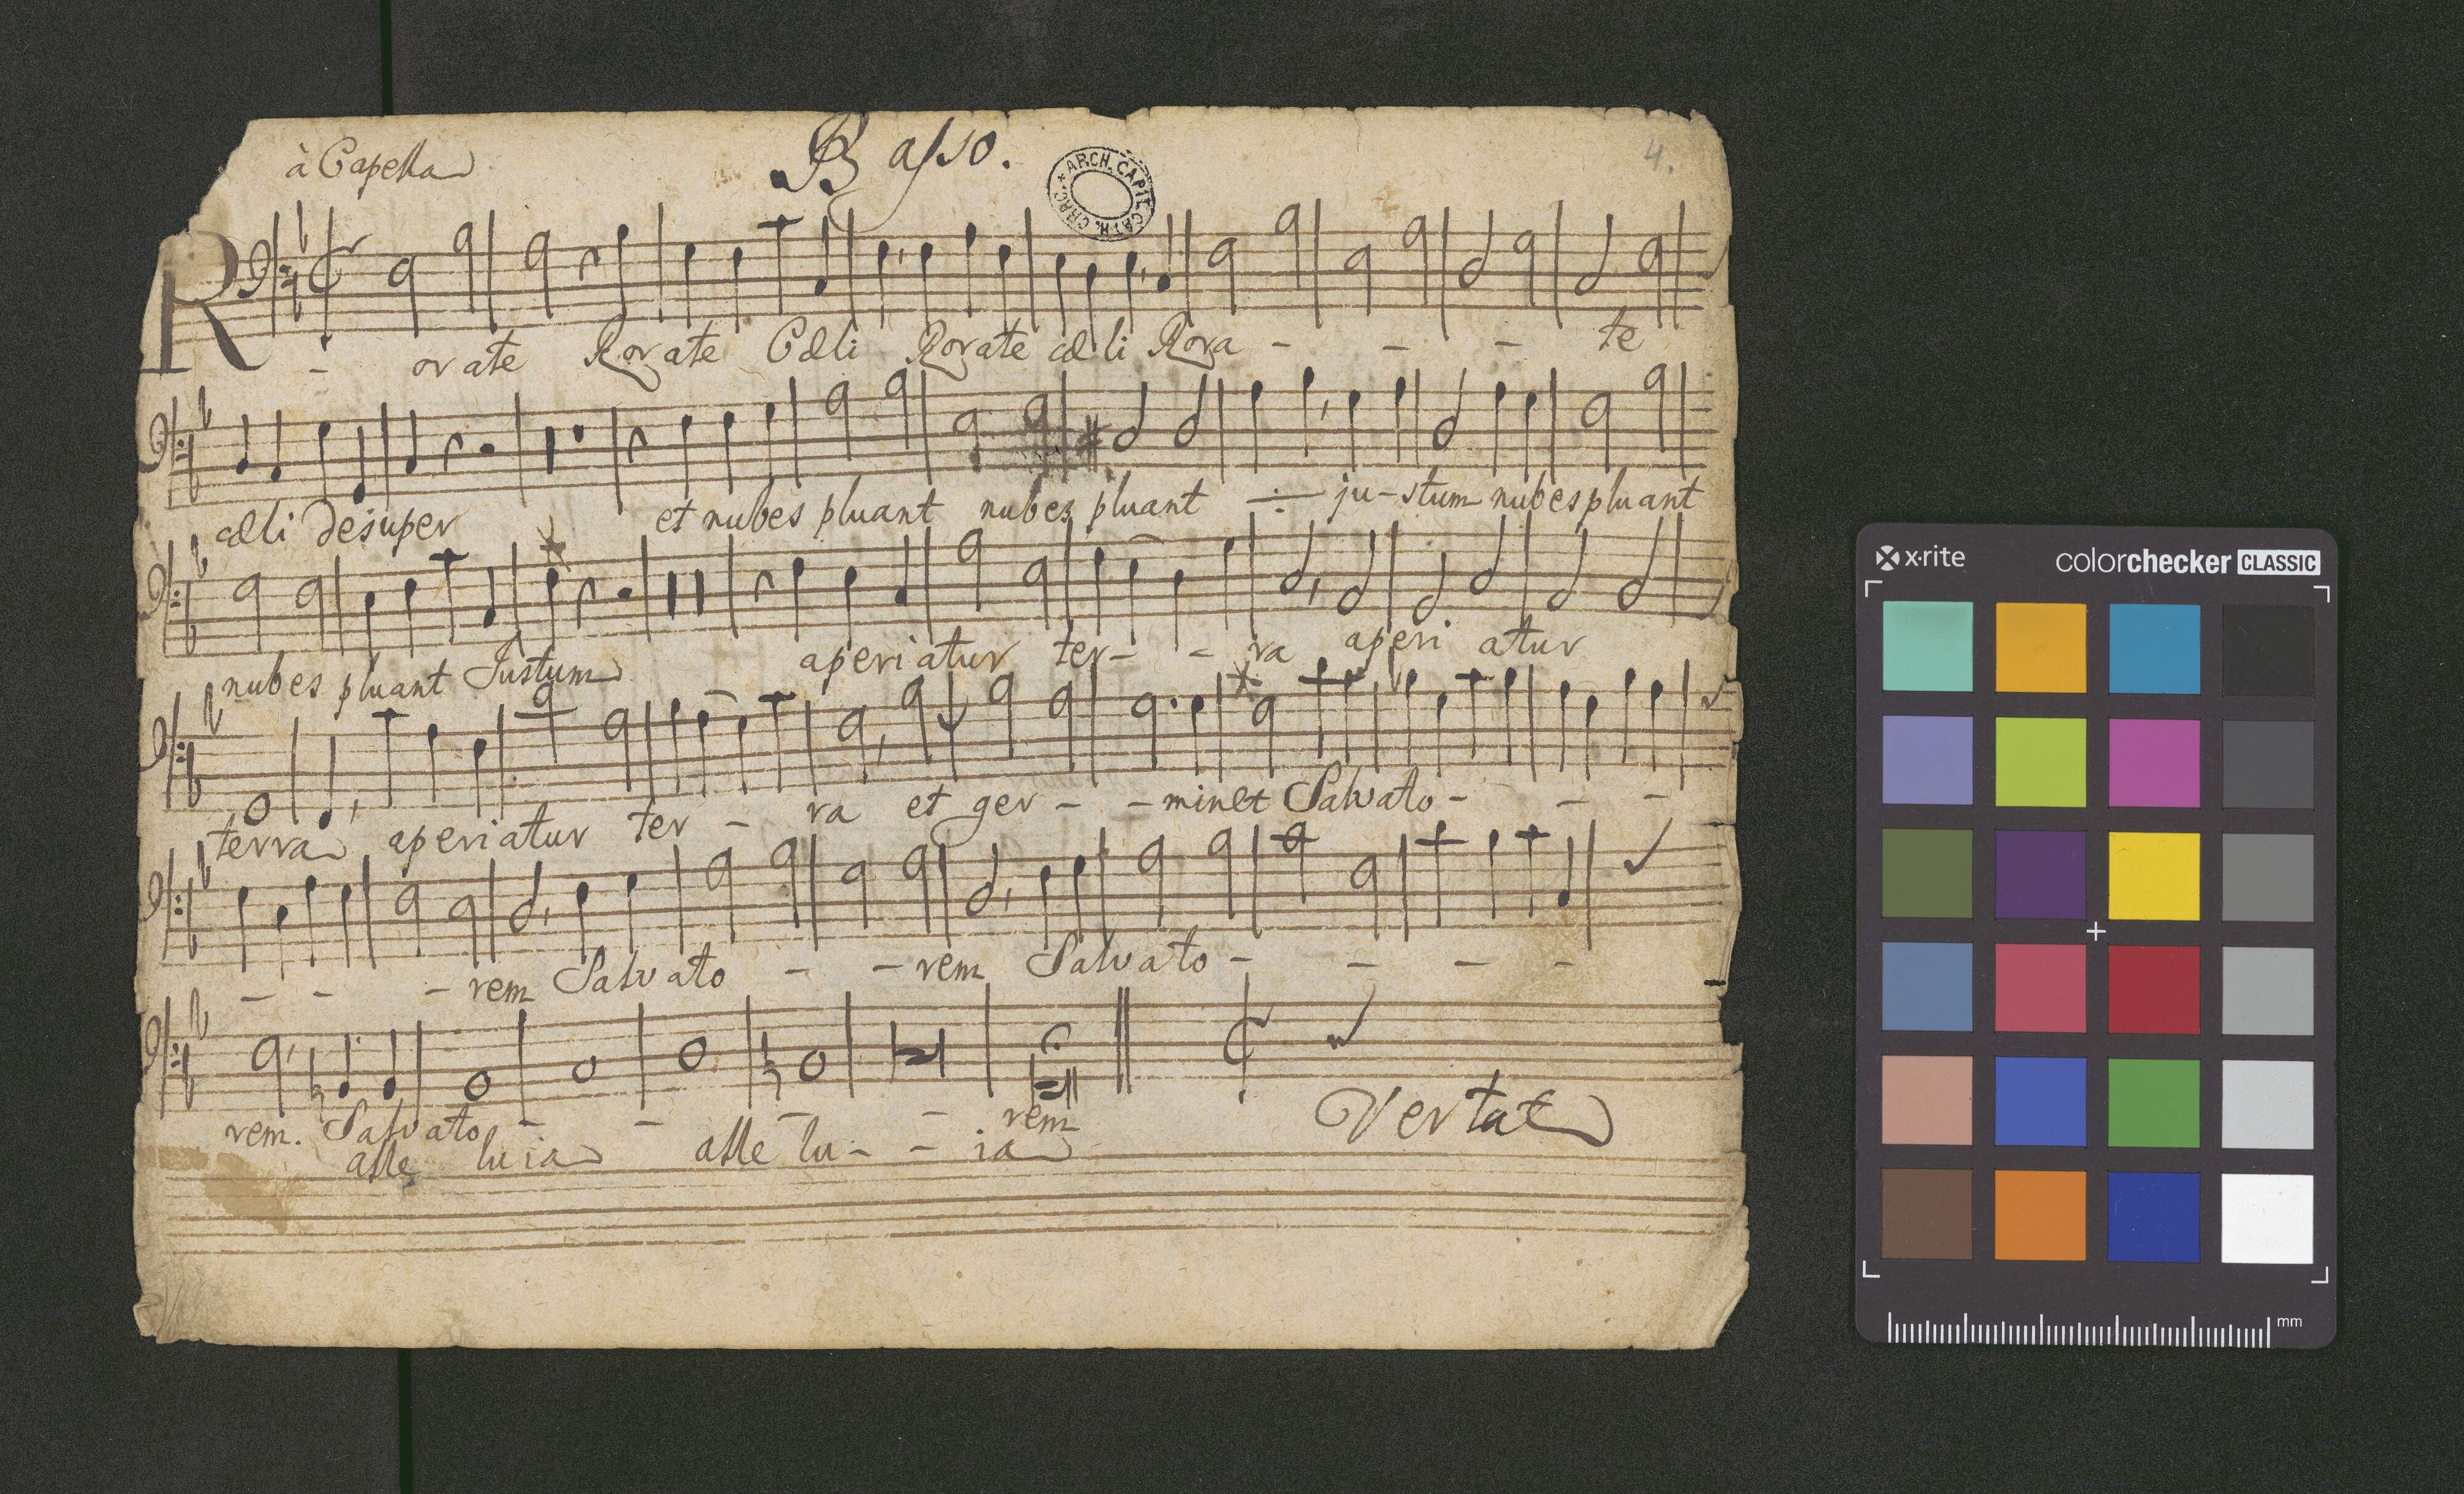 à Capella
Basso.
ARCH. CAPIT. CATH. CRAC.
4.
R - orate Rorate Cæli Rorate cæli Rora - - - te
cæli desuper et nubes pluant nubes pluant ju-stum nubes pluant
nubes pluant Justum aperiatur ter- - ra aperi atur
terra aperiatur ter - ra et ger - - minet Salvato - - -
- - - rem Salvato - - rem Salvato - - - -
rem. Salvato - - - - rem
alle luia alle lu- - ia
Vertat
x·rite
colorchecker CLASSIC
mm